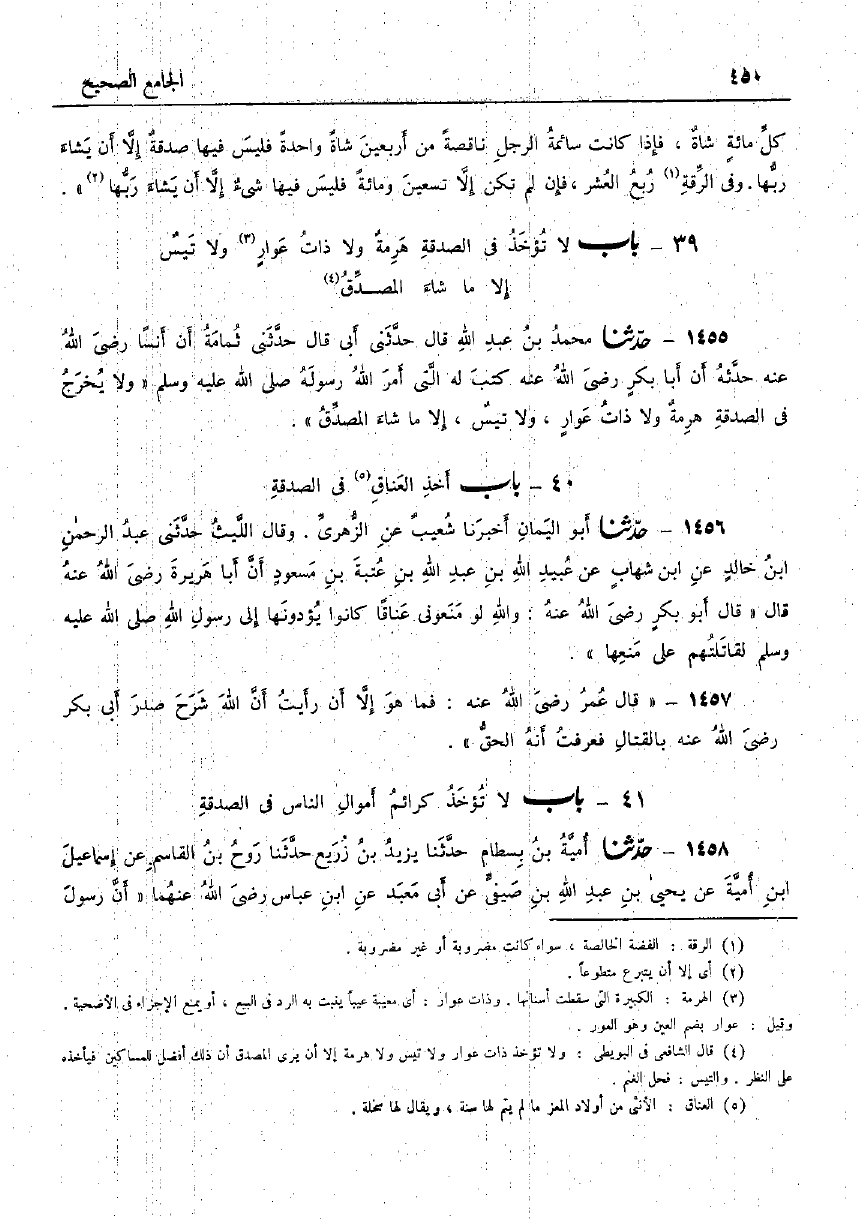 ٤٥٠ الجامع الصحيح
كلِّ مائةٍ شاةٌ ، فإذا كانت سائمةُ الرجلِ ناقصةً من أربعينَ شاةً واحدةً فليسَ فيها صدقةٌ إلَّا أن يَشاءَ
ربُّها . وفى الرِّقةِ(١) رُبعُ العُشر ، فإن لم تكن إلَّا تسعينَ ومائةً فليسَ فيها شىءٌ إلَّا أن يَشاءَ رَبُّها(٢) » .
٣٩ – باب لا تُؤخَذُ فى الصدقةِ هَرِمةٌ ولا ذاتُ عَوارٍ(٣) ولا تَيسٌ
إلا ما شاءَ المصدِّقُ(٤)
١٤٥٥ – حدّثنا محمدُ بنُ عبدِ اللهِ قال حدَّثَنى أبى قال حدَّثَنى ثُمامَةُ أن أنسًا رضىَ اللهُ
عنه حدَّثهُ أن أبا بكرٍ رضىَ اللهُ عنه كتبَ له الَّتى أمرَ اللهُ رسولَهُ صلى الله عليه وسلم « ولا يُخرَجُ
فى الصدقةِ هرِمةٌ ولا ذاتُ عَوارٍ ، ولا تيسٌ ، إلا ما شاءَ المصدِّقُ » .
٤٠ – باب أخذِ العَناقِ(٥) فى الصدقةِ
١٤٥٦ – حدّثنا أبو اليَمانِ أخبرَنا شُعيبٌ عنِ الزُّهرىِّ . وقال اللَّيثُ حدَّثَنى عبدُ الرحمنِ
ابنُ خالدٍ عنِ ابن شهابٍ عن عُبيدِ اللهِ بنِ عبدِ اللهِ بنِ عُتبةَ بنِ مَسعودٍ أنَّ أبا هَريرةَ رضىَ اللهُ عنهُ
قال « قال أبو بكرٍ رضىَ اللهُ عنهُ : واللهِ لو مَنَعونى عَناقًا كانوا يُؤدونَها إلى رسولِ اللهِ صلى الله عليه
وسلم لقاتَلتُهم على مَنعِها » .
١٤٥٧ – « قال عُمرُ رضىَ اللهُ عنه : فما هوَ إلَّا أن رأيتُ أنَّ اللهَ شَرَحَ صدرَ أبى بكر
رضىَ اللهُ عنه بالقتالِ فعرفتُ أنهُ الحقُّ » .
٤١ – باب لا تُؤخَذُ كرائمُ أموالِ الناس فى الصدقةِ
١٤٥٨ – حدّثنا أُميَّةُ بنُ بِسطامٍ حدَّثَنا يزيدُ بنُ زُرَيع حدَّثَنا رَوحُ بنُ القاسمِ عن إسماعيلَ
ابنِ أُميَّةَ عن يحيىٰ بنِ عبدِ اللهِ بنِ صَيفىٍّ عن أبى مَعبَد عنِ ابنِ عباس رضىَ اللهُ عنهُما « أنَّ رسولَ
(١) الرقة : الفضة الخالصة ، سواء كانت مضروبة أو غير مضروبة .
(٢) أى إلا أن يتبرع متطوعاً .
(٣) الهرمة : الكبيرة التى سقطت أسنانها . وذات عوار : أى معيبة عيباً يثبت به الرد فى البيع ، أو يمنع الإجزاء فى الأضحية .
وقيل : عوار بضم العين وهو العور .
(٤) قال الشافعى فى البويطى : ولا تؤخذ ذات عوار ولا تيس ولا هرمة إلا أن يرى المصدق أن ذلك أفضل للمساكين فيأخذه
على النظر . والتيس : فحل الغنم .
(٥) العناق : الأنثى من أولاد المعز ما لم يتم لها سنة ، ويقال لها سخلة .